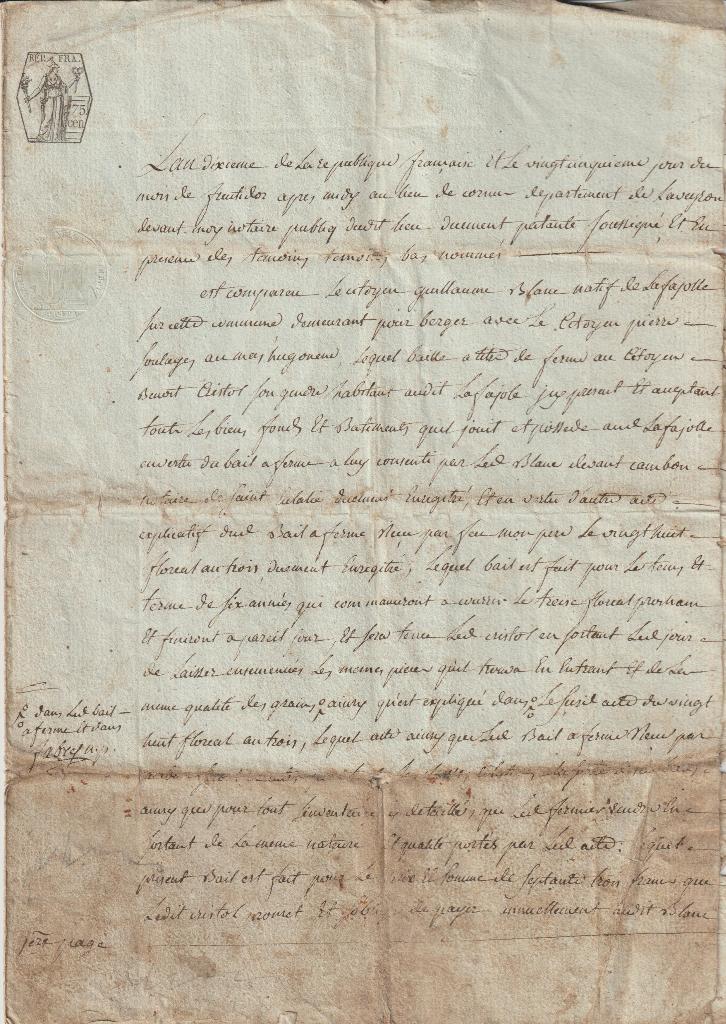 REP. FRA.
75
cen.
Lan dixieme de la republique francaise et le vingt cinquieme jour du
mois de fructidor apres midy au lieu de cornus departement de Laveyron
devant moy notaire publiq dudit lieu duement patanté soussigné, Et En
presence des temoins bas nommés
est compareu le citoyen guillaume Blanc natif de Lafajolle
sur cette commune demeurant pour berger avec Le Citoyen pierre
soulages au mas hugonenc, Lequel baille a titre de ferme au Citoyen
Benoit Cristol son gendre habitant audit Lafajole icy present Et acceptant
toute Les biens fonds Et Batiments quil jouit et possede aud Lafajolle
en vertu du bail a ferme a luy consenti par Led Blanc devant cambon
notaire de Saint duement Enregitré, Et en vertu d'autre acte
explicatif dud Bail a ferme Receu par feu mon pere Le vingt huit
floreal an trois, duement Enregitré; Lequel bail est fait pour Le tems Et
terme de six années qui commanceront a courrir Le treise floreal prochain
Et finiront a pareil jour, Et sera tenu Led cristol en sortant Led jour
de Laisser ensemencées Les memes pieces qu'il trouva En Entrant Et de La
meme qualité des grains ainsy qu'est expliqué dans Le susd acte du vingt
huit floreal an trois, Lequel acte ainsy que Led Bail a ferme Receu par
dans Led bail
a ferme Et dans
ainsy que pour tout detaillés, que Led fermier rendra En
sortant de La meme nature Et qualité portés par Led acte: Lequel
present Bail est fait pour Le prix Et somme de septante trois francs que
Ledit cristol promet Et de payer annuellement audit Blanc
1ere page